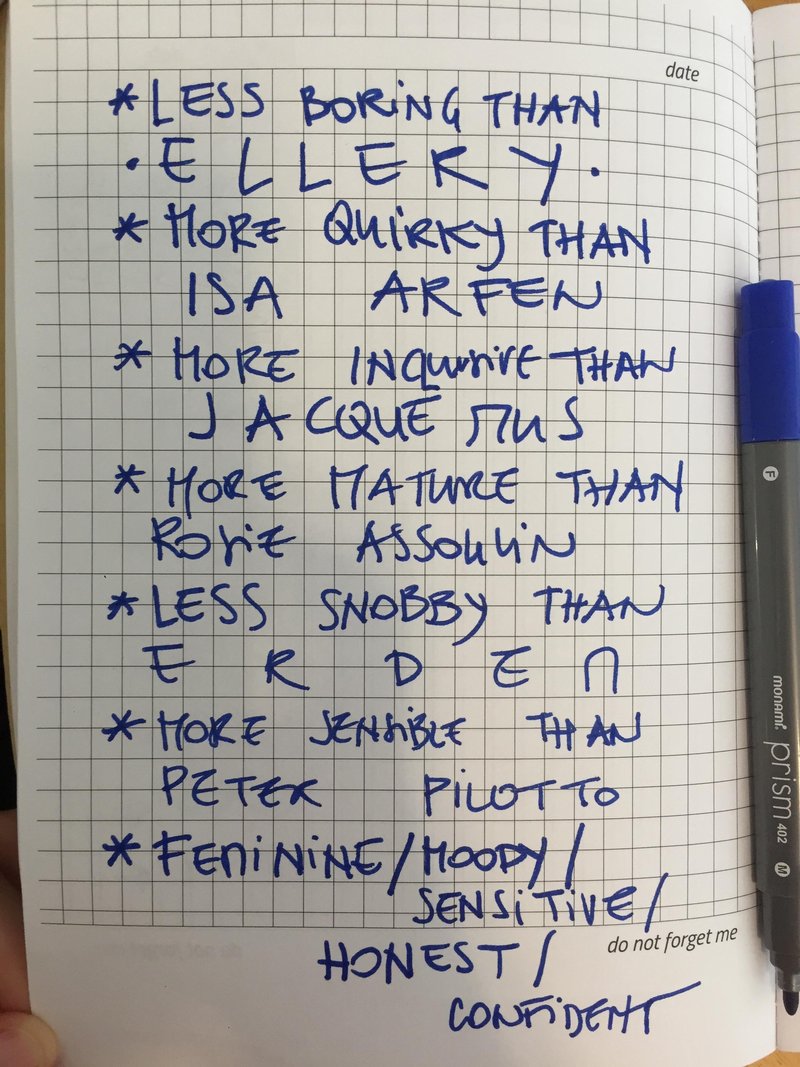 date
*LESS BORING THAN
·ELLERY·
*MORE QUIRKY THAN
ISA ARFEN
*MORE INQUISITIVE THAN
JACQUEMUS
*MORE MATURE THAN
ROSIE ASSOULIN
*LESS SNOBBY THAN
ERDEM
*MORE SENSIBLE THAN
PETER PILOTTO
*FEMININE/MOODY/
SENSITIVE/
do not forget me
HONEST/
CONFIDENT
F
monami
prism 402
M